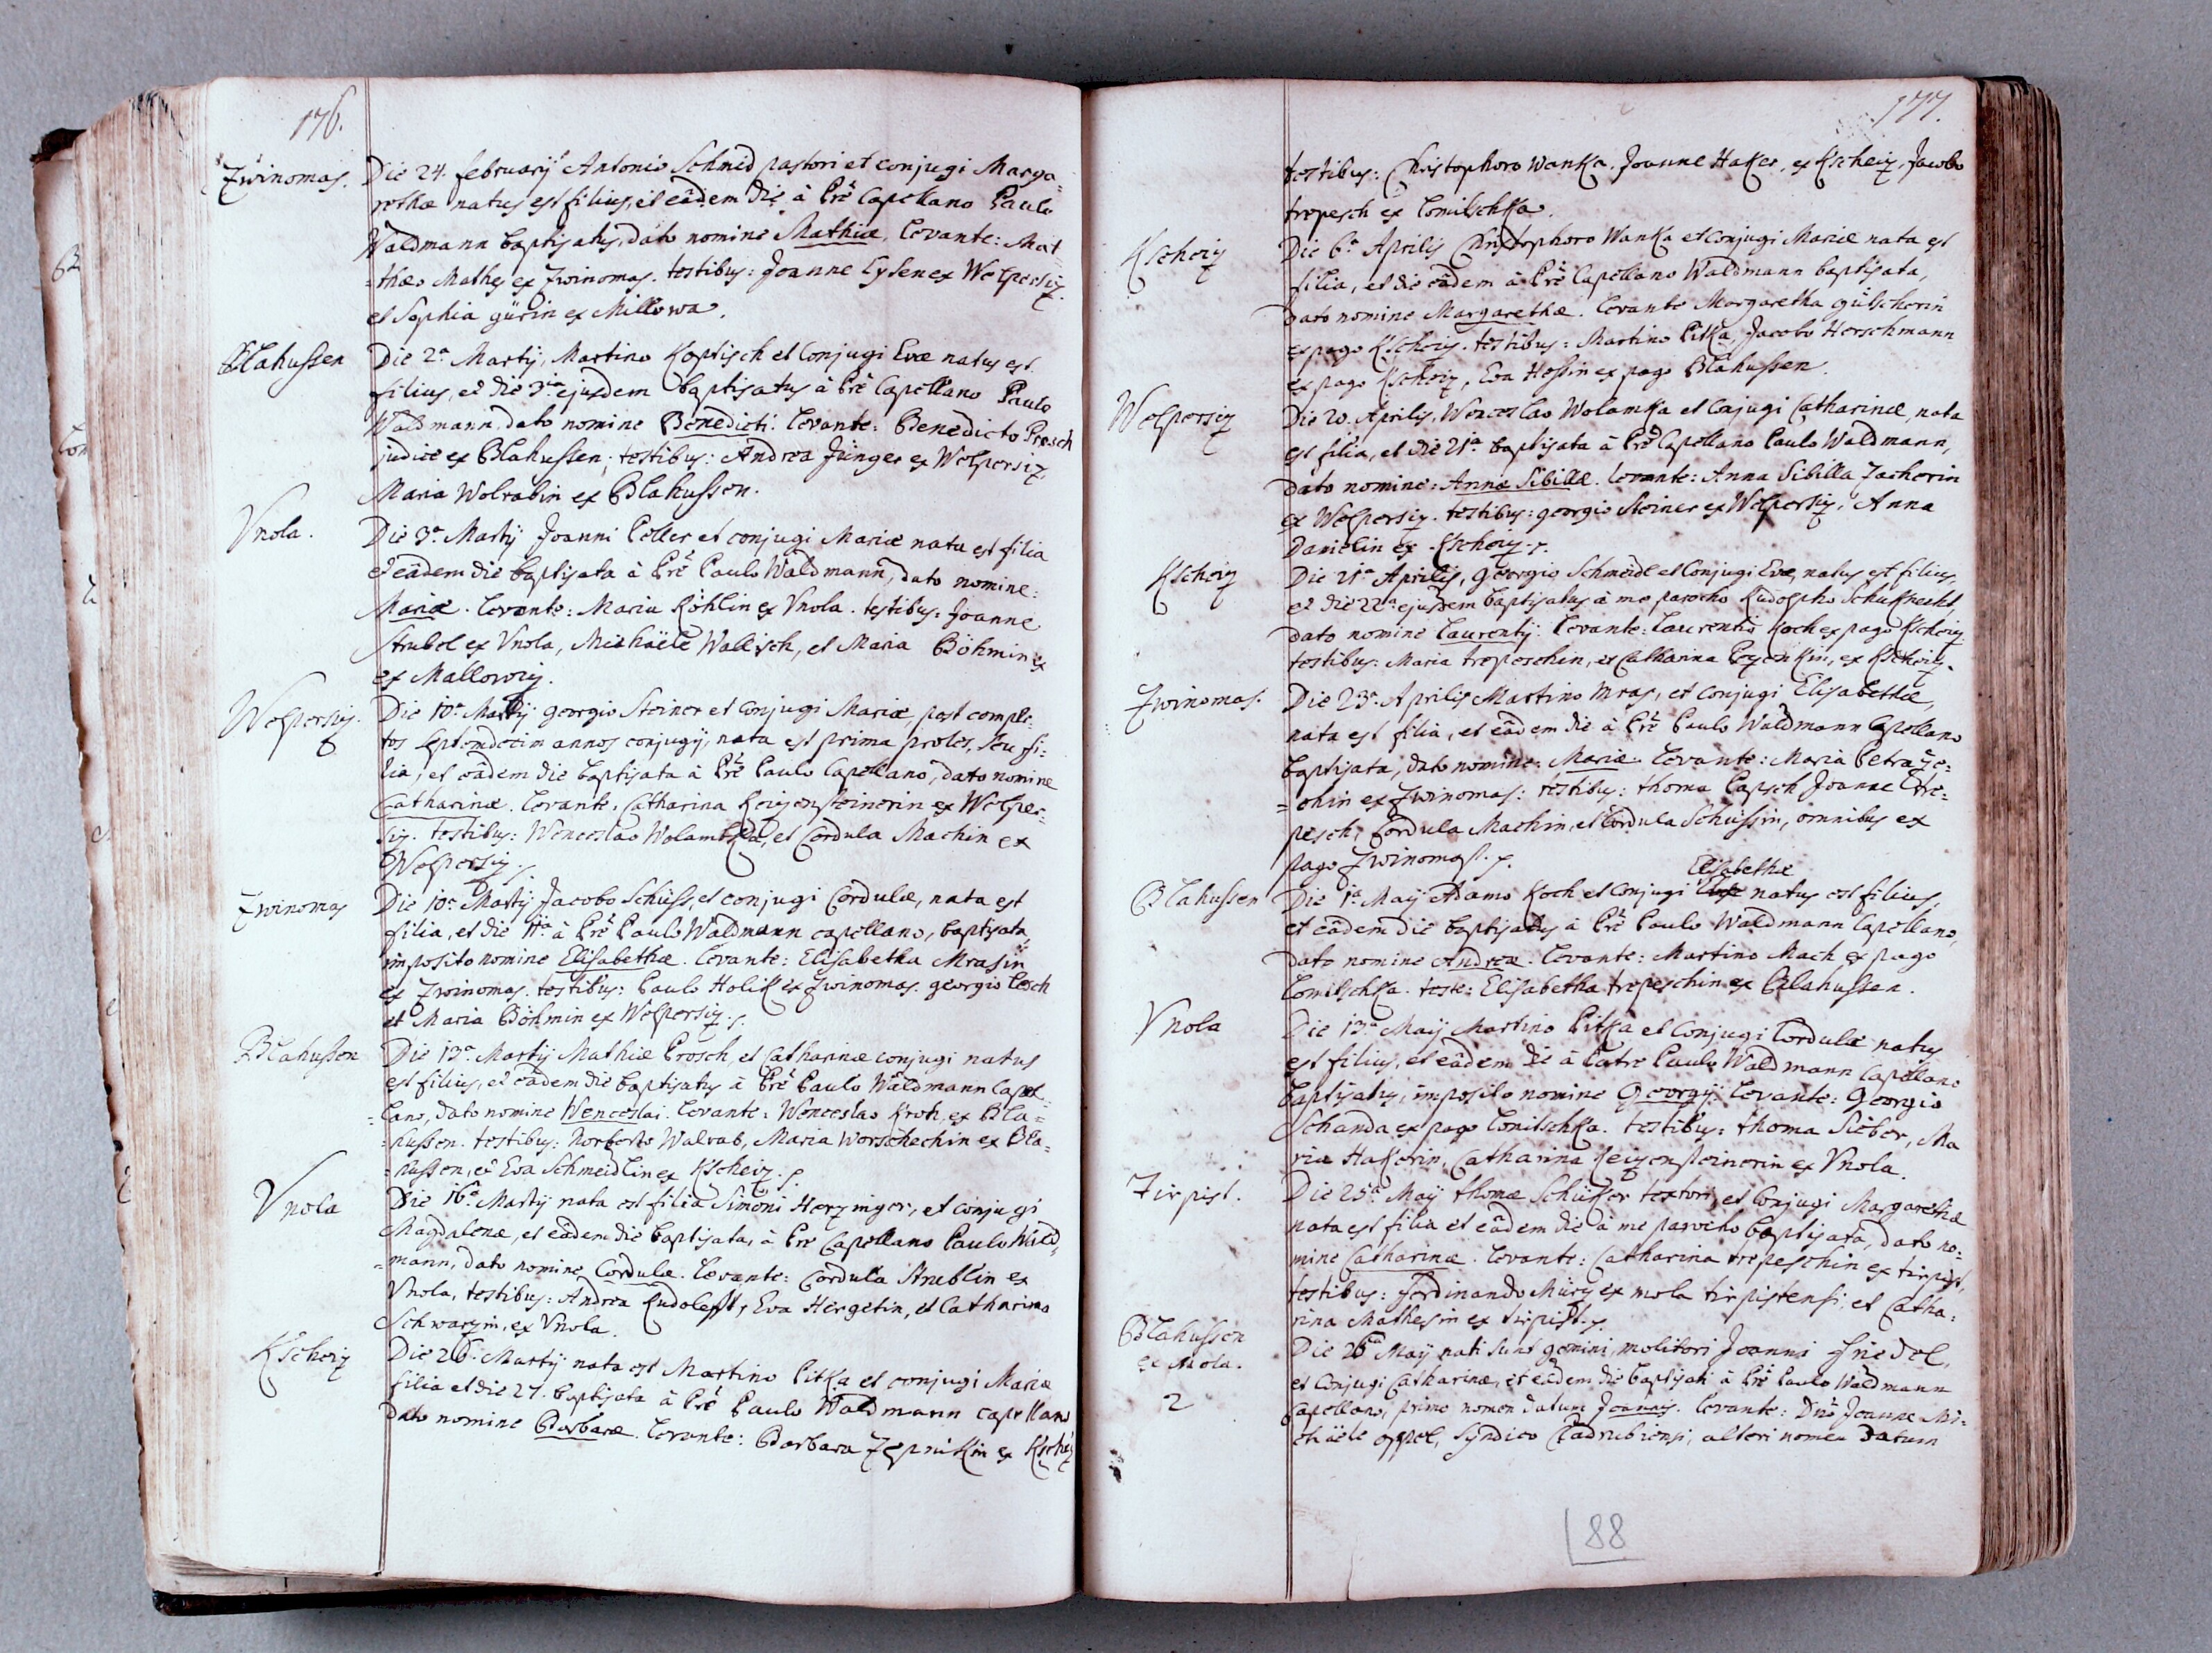 176.
Zwinomas. Die 24. februarij Antonio Schmid pastori et conjugi Marga-
rethæ natus est filius, et eâdem die à Pre Capellano Paulo
Waldmann baptisatus, dato nomine Mathiæ. Levante: Mat-
thæo Mathes ex Zwinomas. testibus: Joanne Eysen ex Wolpersiz.
et Sophia gürin ex Millowa.
Blahussen Die 2a Martij, Martino Koptisch et conjugi Evæ natus est
filius, et die 3tia ejusdem baptisatus à Pre Capellano Paulo
Waldmann, dato nomine Benedicti. Levante: Benedicto Prosch
judice ex Blahussen; testibus: Andrea Jünger ex Wolpersiz,
Maria Wolrabin ex Blahussen.
Vnola. Die 3a Martij Joanni Peller et conjugi Mariæ nata est filia
et eâdem die baptisata à Pre Paulo Waldmann, dato nomine:
Mariæ. Levante: Maria Köhlin ex Vnola. testibus: Joanne
Strubel ex Vnola, Michaële Wallisch, et Maria Böhmin ex
ex Mallowiz.
Wolpersiz. Die 10a Martij georgio Steiner et conjugi Mariæ, post comple-
tos septemdecim annos conjugij, nata est prima proles, seu fi-
lia, et eâdem die baptisata à Pre Paulo Capellano, dato nomine
Catharinæ. Levante: Catharina Reizensteinerin ex Wolper-
siz. testibus: Wenceslao Wolamka, et Cordula Machin ex
Wolpersiz.
Zwinomas Die 10a Martij Jacobo Schüss, et conjugi Cordulæ, nata est
filia, et die 11a à Pre Paulo Waldmann capellano, baptisata,
imposito nomine Elisabethæ. Levante: Elisabetha Mrasin
ex Zwinomas. testibus: Paulo Holik ex Zwinomas. georgio Lesch
et Maria Böhmin ex Wolpersiz.
Blahussen Die 13a Martij Mathiæ Prosch, et Catharinæ conjugi natus
est filius, et eâdem die baptisatus à Pre Paulo Waldmann Capel-
=lano, dato nomine Wenceslai. Levante: Wenceslao Kroh, ex Bla-
=hussen. testibus: Norberto Walrab, Maria Worschechin ex Bla-
=hussen, et Eva Schmeidlin ex Kscheiz.
Vnola Die 16a Martij nata est filia Simoni Herzinger, et conjugi
Magdalenæ, et eâdem die baptisata, à Pre Capellano Paulo Wald-
=mann, dato nomine Cordulæ. Levante: Cordula Strublin ex
Vnola, testibus: Andrea Rudolefft, Eva Hergetin, et Catharina
Schwarzin, ex Vnola.
Kscheiz Die 26. Martij nata est Martino Pitka et conjugi Mariæ
filia et die 27. baptisata à Pre Paulo Waldmann capellano
dato nomine Barbaræ. Levante: Barbara Zepnikin ex Kscheiz
177.
testibus: Christophoro Wanka. Joanne Haker, ex Kscheiz, Jacobo
trepesch ex Lomitschka.
Kscheiz Die 6a Aprilis Christophoro Wanka et conjugi Mariæ nata est
filia, et die eâdem à Pre Capellano Waldmann baptisata,
dato nomine Margarethæ. Levante Margaretha gülscherin
ex pago Kscheiz. testibus: Martino Pitka, Jacobo Herschmann
ex pago Kscheiz, Eva Hossin ex pago Blahussen.
Wolpersiz Die 20. Aprilis, Wenceslao Wolamka et conjugi Catharinæ, nata
est filia, et die 21a baptisata à Pre Capellano Paulo Waldmann,
dato nomine: Annæ Sibillæ. Levante: Anna Sibilla Zacherin
ex Wolpersiz. testibus: georgio Steiner ex Wolpersiz, Anna
Danielin ex Kscheiz.
Kscheiz Die 21a Aprilis, Georgio Schmeidl et conjugi Evæ, natus est filius,
et die 22a ejusdem baptisatus à me parocho Rudolpho Schuknecht,
dato nomine Laurentij. Levante: Laurentio Koch ex pago Kscheiz.
testibus: Maria trepeschin, et Catharina kin, ex Kscheiz.
Zwinomas. Die 23a Aprilis Martino Mras, et conjugi Elisabethæ,
nata est filia, et eâdem die à Pre Paulo Waldmann Capellano
baptisata, dato nomine: Mariæ. Levante: Maria Petraye-
=chin ex Zwinomas: testibus: thoma Papsch Joanne tre-
pesch, Cordula Machin, et Cordula Schüssin, omnibus ex
pago Zwinomas.
Elisabethæ
Blahussen Die 1a Maij Adamo Koch et conjugi natus est filius,
et eâdem die baptisatus à Pre Paulo Waldmann Capellano,
dato nomine Andreæ. Levante: Martino Mach ex pago
Lomitschka. teste: Elisabetha trepeschin ex Blahussen.
Vnola Die 13a Maij Martino Pitka et conjugi Cordulæ natus
est filius, et eâdem die à Patre Paulo Waldmann Capellano
baptisatus, imposito nomine Georgij. Levante: Georgio
Schanda ex pago Lomitschka. testibus: thoma Sieber, Ma
ria Hakerin, Catharina Reizensteinerin ex Vnola.
Tirpist. Die 25a Maij thomæ Schüker textori, et conjugi Margarethæ
nata est filia et eâdem die à me parocho baptisata, dato no-
mine Catharinæ. Levante: Catharina trepeschin ex tirpist,
testibus: Ferdinando Müry ex mola tirpistensi, et Catha-
rina Mathesin ex tirpist.
Blahussen
ex Mola.
2
Die 26ta Maij nati sunt gemini, molitori Joanni Friedel,
et conjugi Catharinæ, et eâdem die baptisati à Pre Paulo Waldmann
Capellano, primo nomen datum Joannis. Levante: Dno Joanne Mi-
chäele oppel, Syndico Cladrubiensi, alteri nomen datum
88